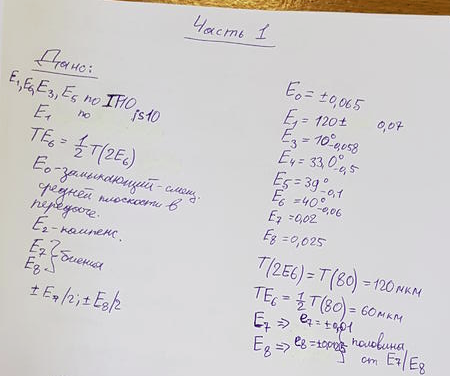 Часть 1
Дано:
E₁, E₂, E₃, E₅ по IT10
E₁ по js10
TE₆ = 1/2 T(2E₆)
E₀ - замыкающий - смещ.
средней плоскости в
передаче.
E₂ - компенс.
E₇
E₈ } биения
± E₇/2; ± E₈/2
E₀ = ±0,065
E₁ = 120± 0,07
E₃ = 10⁰₋₀,₀₅₈
E₄ = 33,0⁰₋₀,₅
E₅ = 39⁰₋₀,₁
E₆ = 40⁰₋₀,₀₆
E₇ = 0,02
E₈ = 0,025
T(2E₆) = T(80) = 120 мкм
TE₆ = 1/2 T(80) = 60 мкм
E₇ => e₇ = ±0,01
E₈ => e₈ = } половина
от E₇/E₈